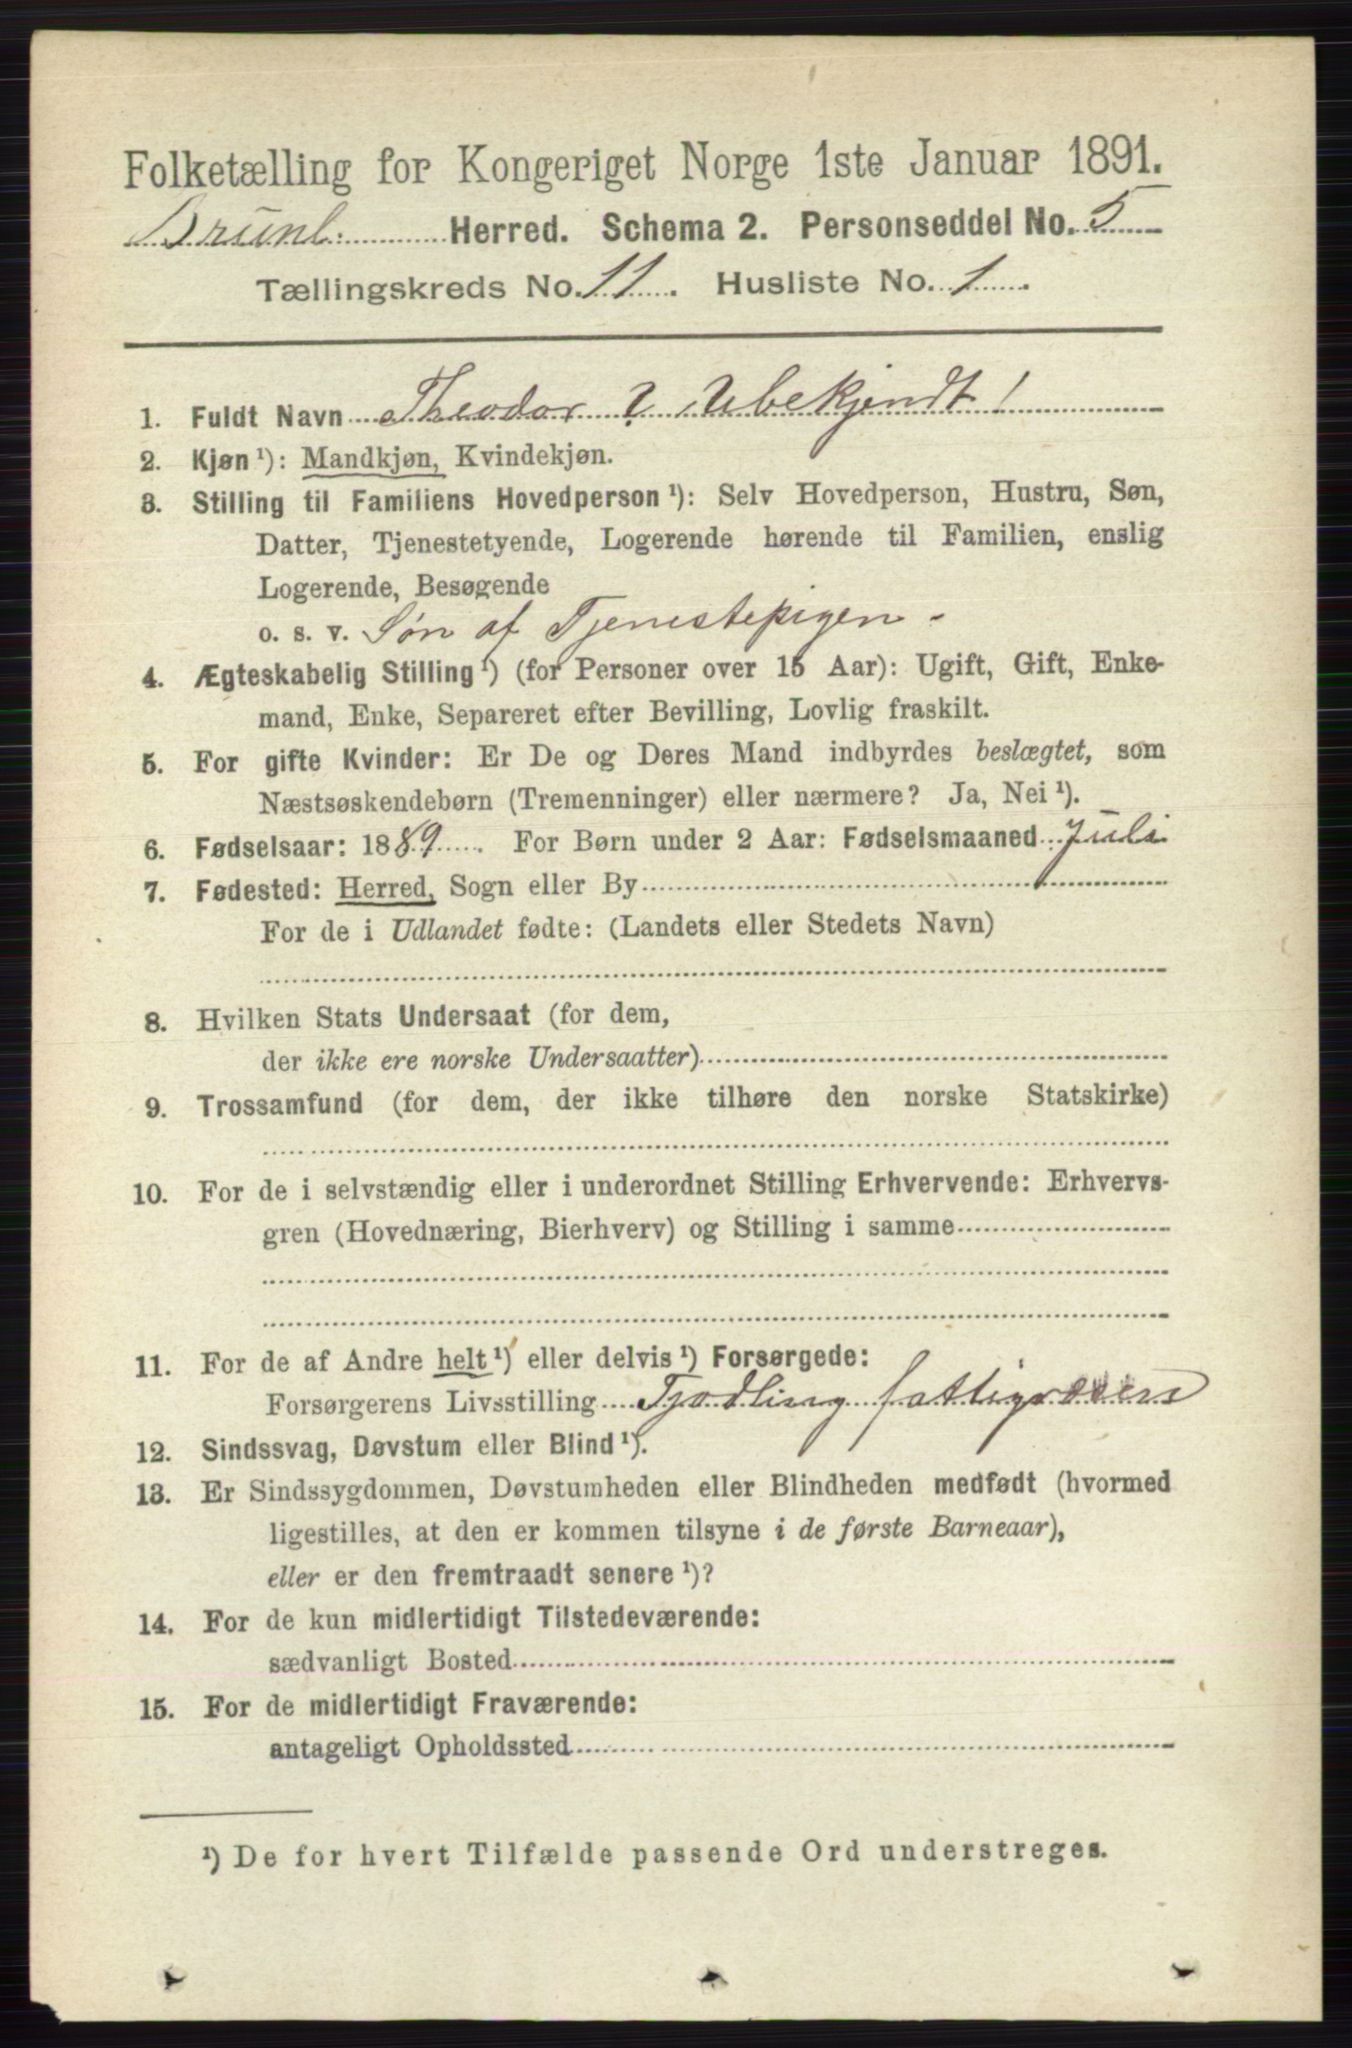 Folketælling for Kongeriget Norge 1ste Januar 1891.
Brunl: Herred. Schema 2. Personseddel No. 5
Tællingskreds No. 11. Husliste No. 1.
1. Fuldt Navn Theodor ? Ubekjendt!
2. Kjøn ¹): Mandkjøn, Kvindekjøn.
3. Stilling til Familiens Hovedperson ¹): Selv Hovedperson, Hustru, Søn,
Datter, Tjenestetyende, Logerende hørende til Familien, enslig
Logerende, Besøgende
o. s. v. Søn af Tjenestepigen -
4. Ægteskabelig Stilling ¹) (for Personer over 15 Aar): Ugift, Gift, Enke-
mand, Enke, Separeret efter Bevilling, Lovlig fraskilt.
5. For gifte Kvinder: Er De og Deres Mand indbyrdes beslægtet, som
Næstsøskendebørn (Tremenninger) eller nærmere? Ja, Nei ¹).
6. Fødselsaar: 1889. For Børn under 2 Aar: Fødselsmaaned Juli
7. Fødested: Herred, Sogn eller By
For de i Udlandet fødte: (Landets eller Stedets Navn)
8. Hvilken Stats Undersaat (for dem,
der ikke ere norske Undersaatter)
9. Trossamfund (for dem, der ikke tilhøre den norske Statskirke)
10. For de i selvstændig eller i underordnet Stilling Erhvervende: Erhvervs-
gren (Hovednæring, Bierhverv) og Stilling i samme
11. For de af Andre helt ¹) eller delvis ¹) Forsørgede:
Forsørgerens Livsstilling Tjødling
12. Sindssvag, Døvstum eller Blind ¹).
13. Er Sindssygdommen, Døvstumheden eller Blindheden medfødt (hvormed
ligestilles, at den er kommen tilsyne i de første Barneaar),
eller er den fremtraadt senere ¹)?
14. For de kun midlertidigt Tilstedeværende:
sædvanligt Bosted
15. For de midlertidigt Fraværende:
antageligt Opholdssted
¹) De for hvert Tilfælde passende Ord understreges.